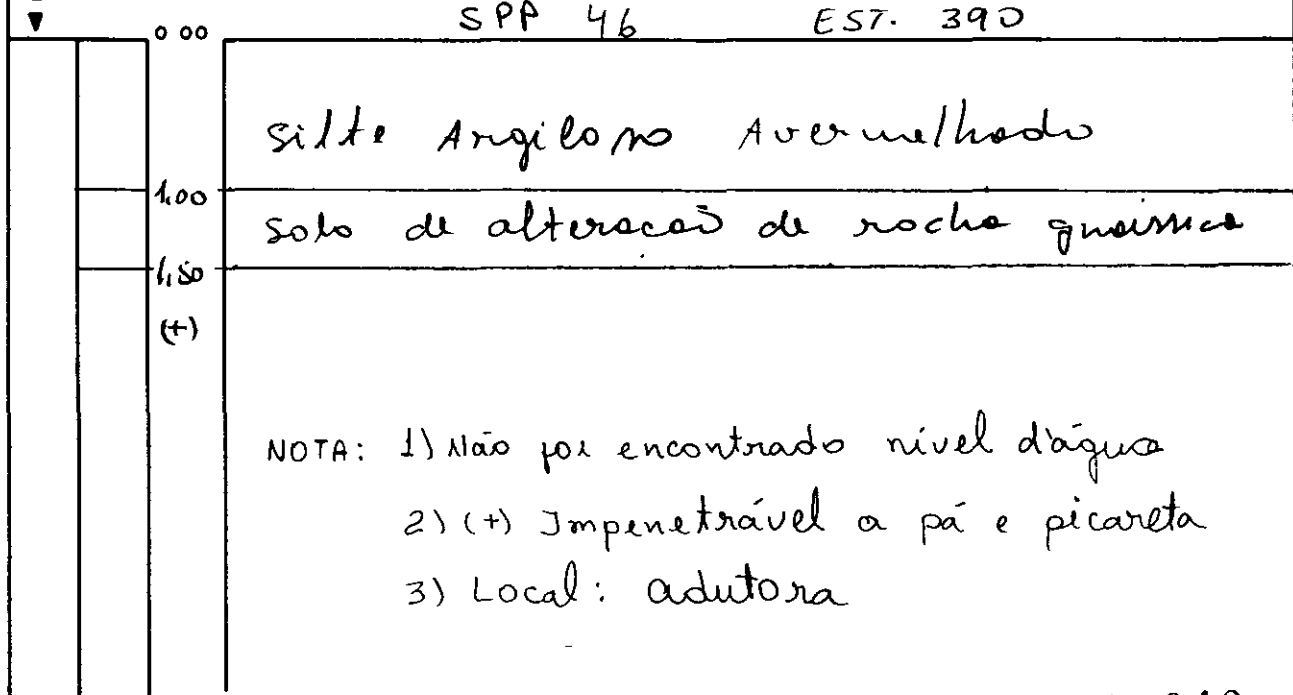 SPP 46 EST. 390
0 00
Silte Argiloso Avermelhado
1,00
Solo de alteracaõ de rocha gnaissica
1,50
(+)
NOTA: 1) Não foi encontrado nível d'água
2) (+) Impenetrável a pá e picareta
3) Local: adutora